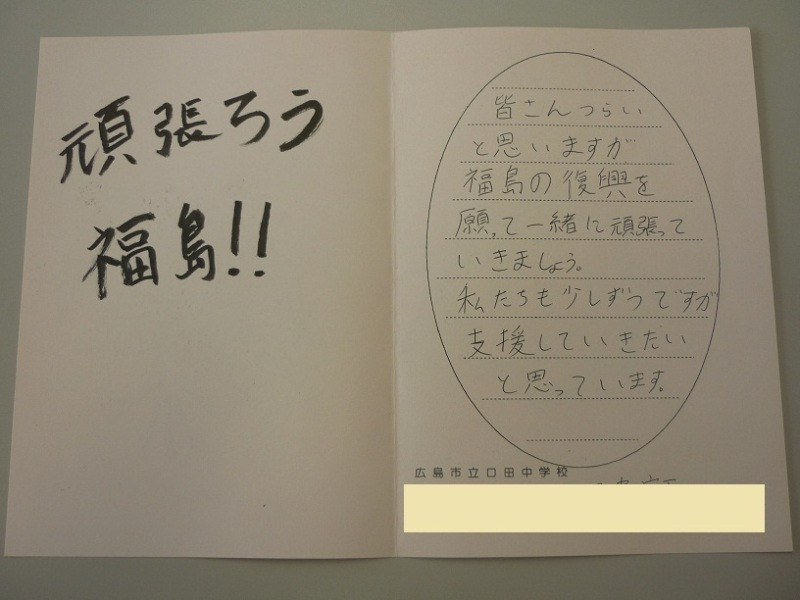 頑張ろう
福島!!
皆さんつらい
と思いますが
福島の復興を
願って一緒に頑張って
いきましょう。
私たちも少しずつですが
支援していきたい
と思っています。
広島市立口田中学校